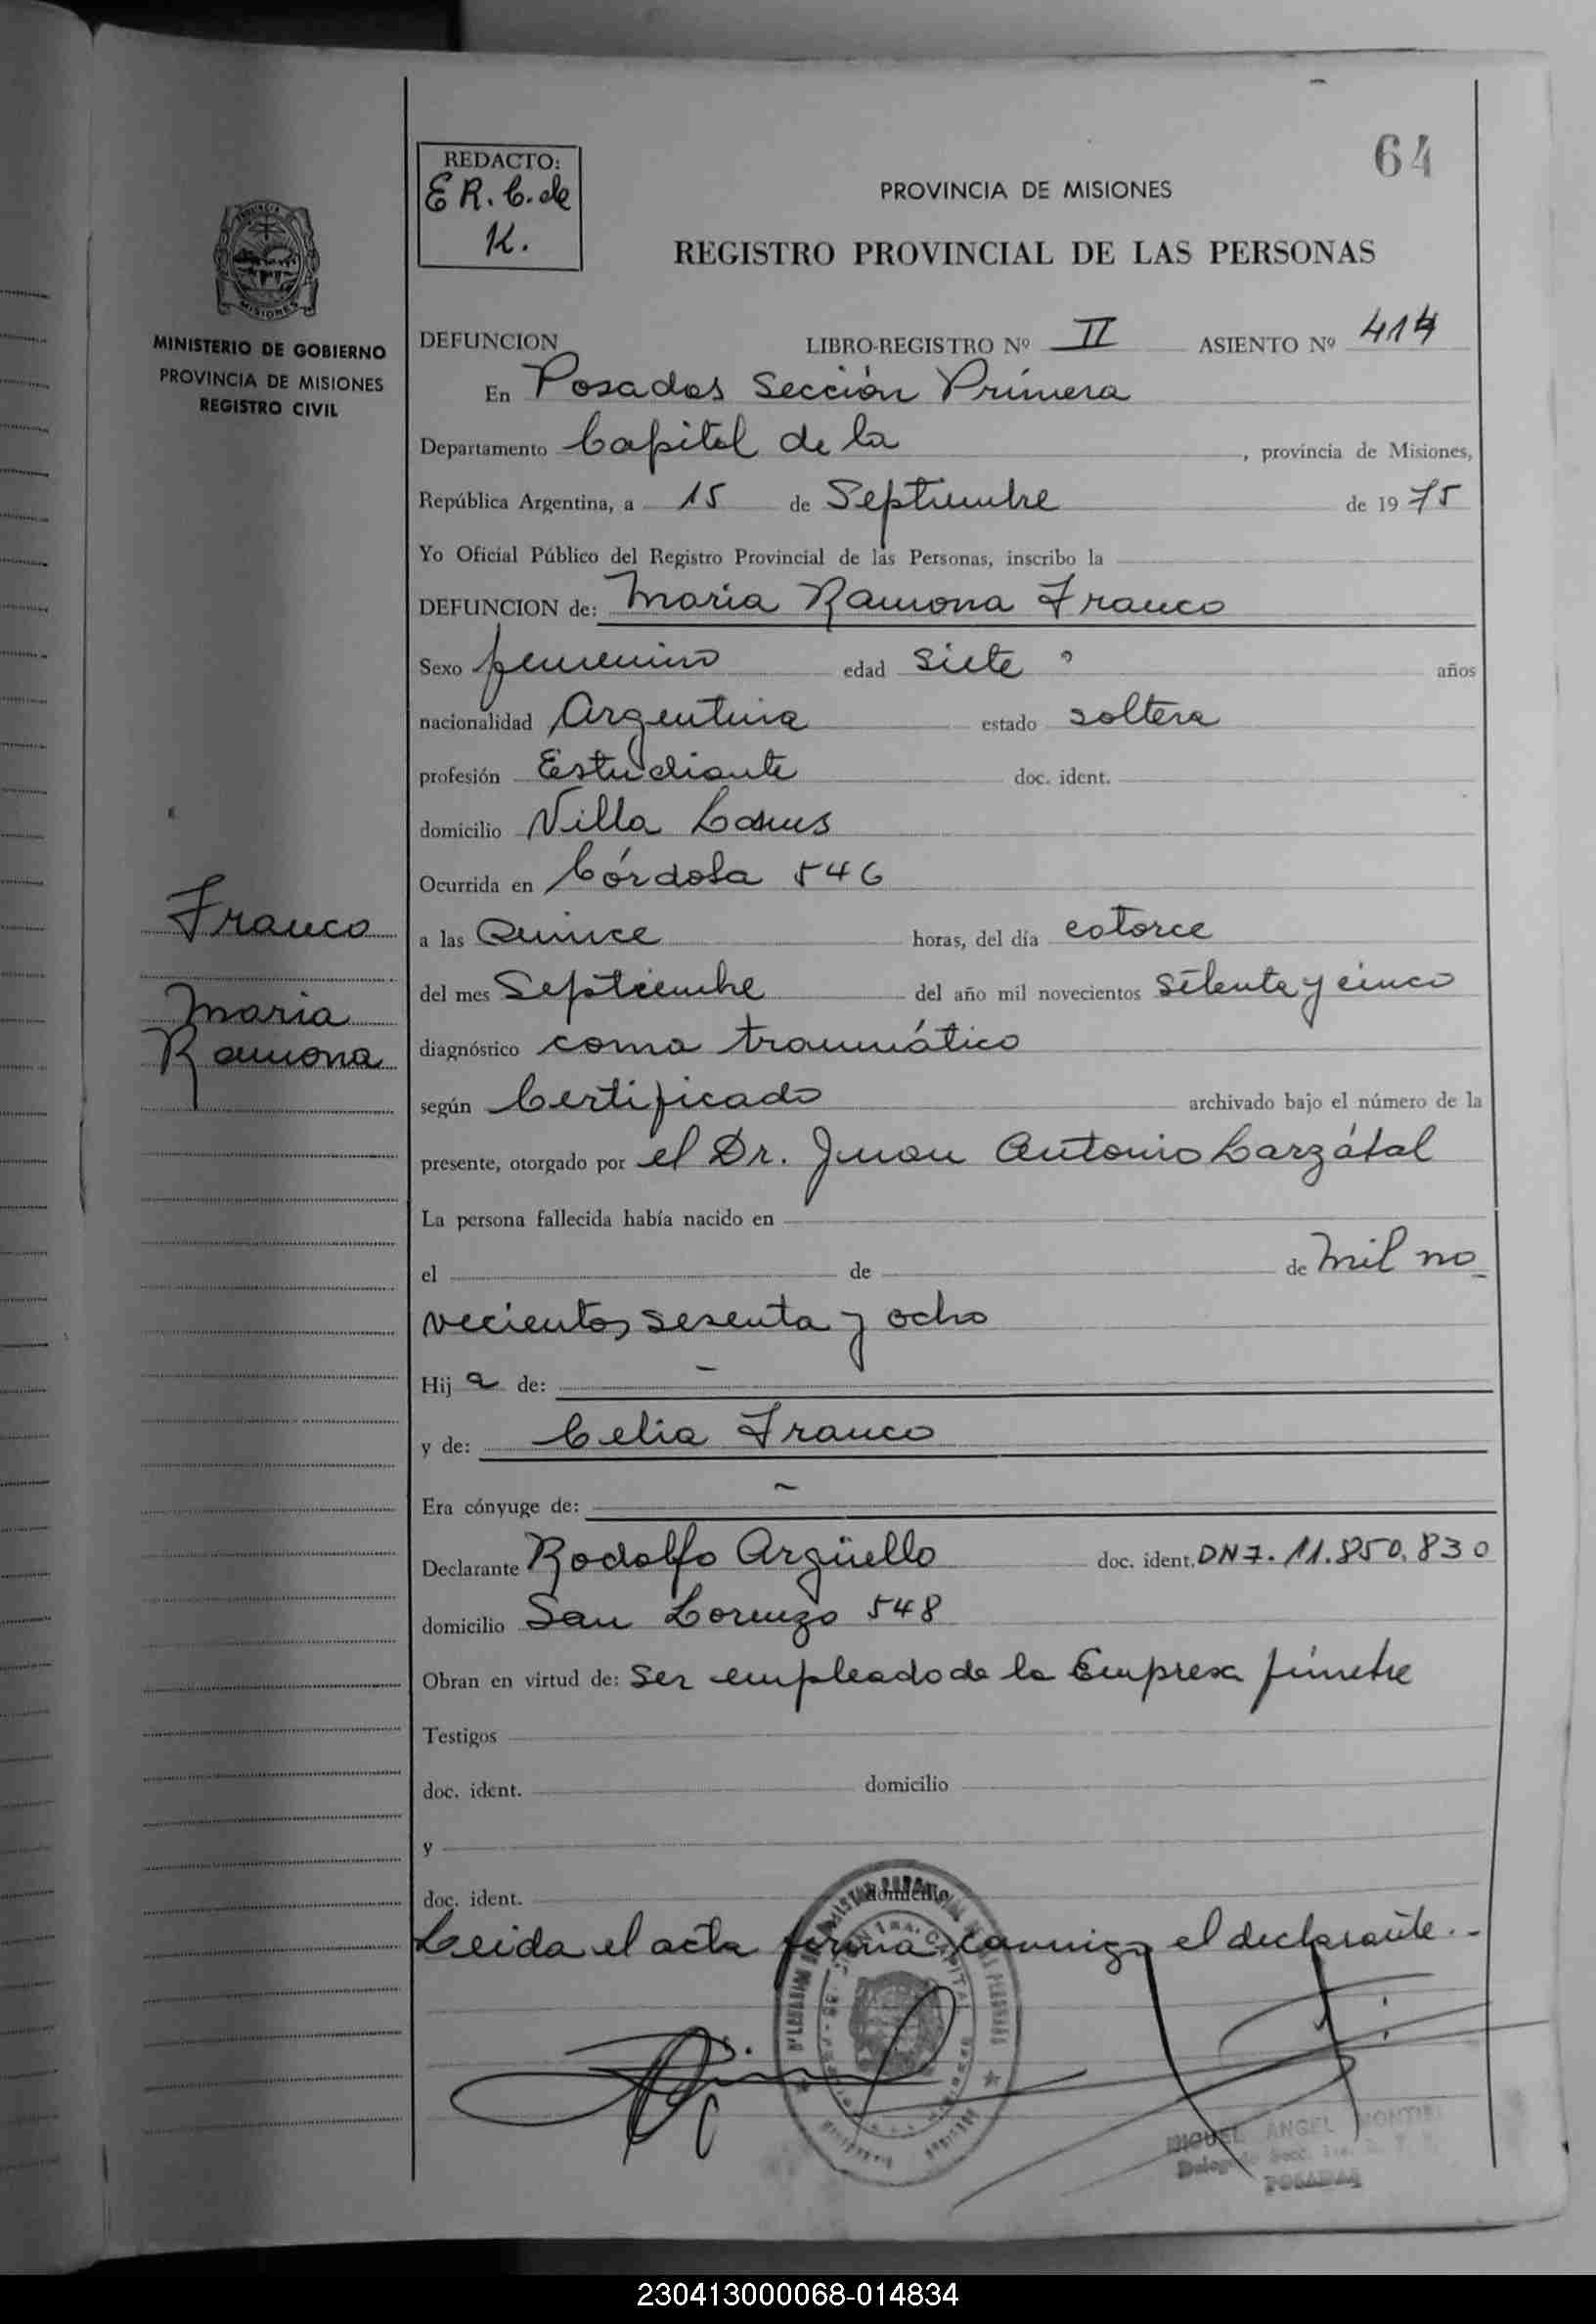 64
REDACTO:
E R. C. de
K.
PROVINCIA DE MISIONES
REGISTRO PROVINCIAL DE LAS PERSONAS
MINISTERIO DE GOBIERNO
PROVINCIA DE MISIONES
REGISTRO CIVIL
DEFUNCION LIBRO-REGISTRO Nº II ASIENTO Nº 414
En Posadas Sección Primera
Departamento Capital de la , provincia de Misiones,
República Argentina, a 15 de Septiembre de 1975
Yo Oficial Público del Registro Provincial de las Personas, inscribo la
DEFUNCION de: Maria Ramona Franco
Sexo femenino edad Siete años
nacionalidad Argentina estado soltera
profesión Estudiante doc. ident.
domicilio Villa Lanus
Ocurrida en Córdoba 546
Franco
a las Quince horas, del día catorce
Maria
Ramona
del mes Septiembre del año mil novecientos setenta y cinco
diagnóstico coma traumático
según Certificado archivado bajo el número de la
presente, otorgado por el Dr. Juan Antonio Larzábal
La persona fallecida había nacido en
el de de Mil no
vecientos sesenta y ocho
Hij a de: -
y de: Celia Franco
Era cónyuge de: -
Declarante Rodolfo Argüello doc. ident. DNI. 11.850.830
domicilio San Lorenzo 548
Obran en virtud de: Ser empleado de la Empresa fúnebre
Testigos
doc. ident. domicilio
y
doc. ident. domicilio
Leida el acta firma conmigo el declarante.-
MIGUEL ANGEL MONTIEL
POSADAS
230413000068-014834